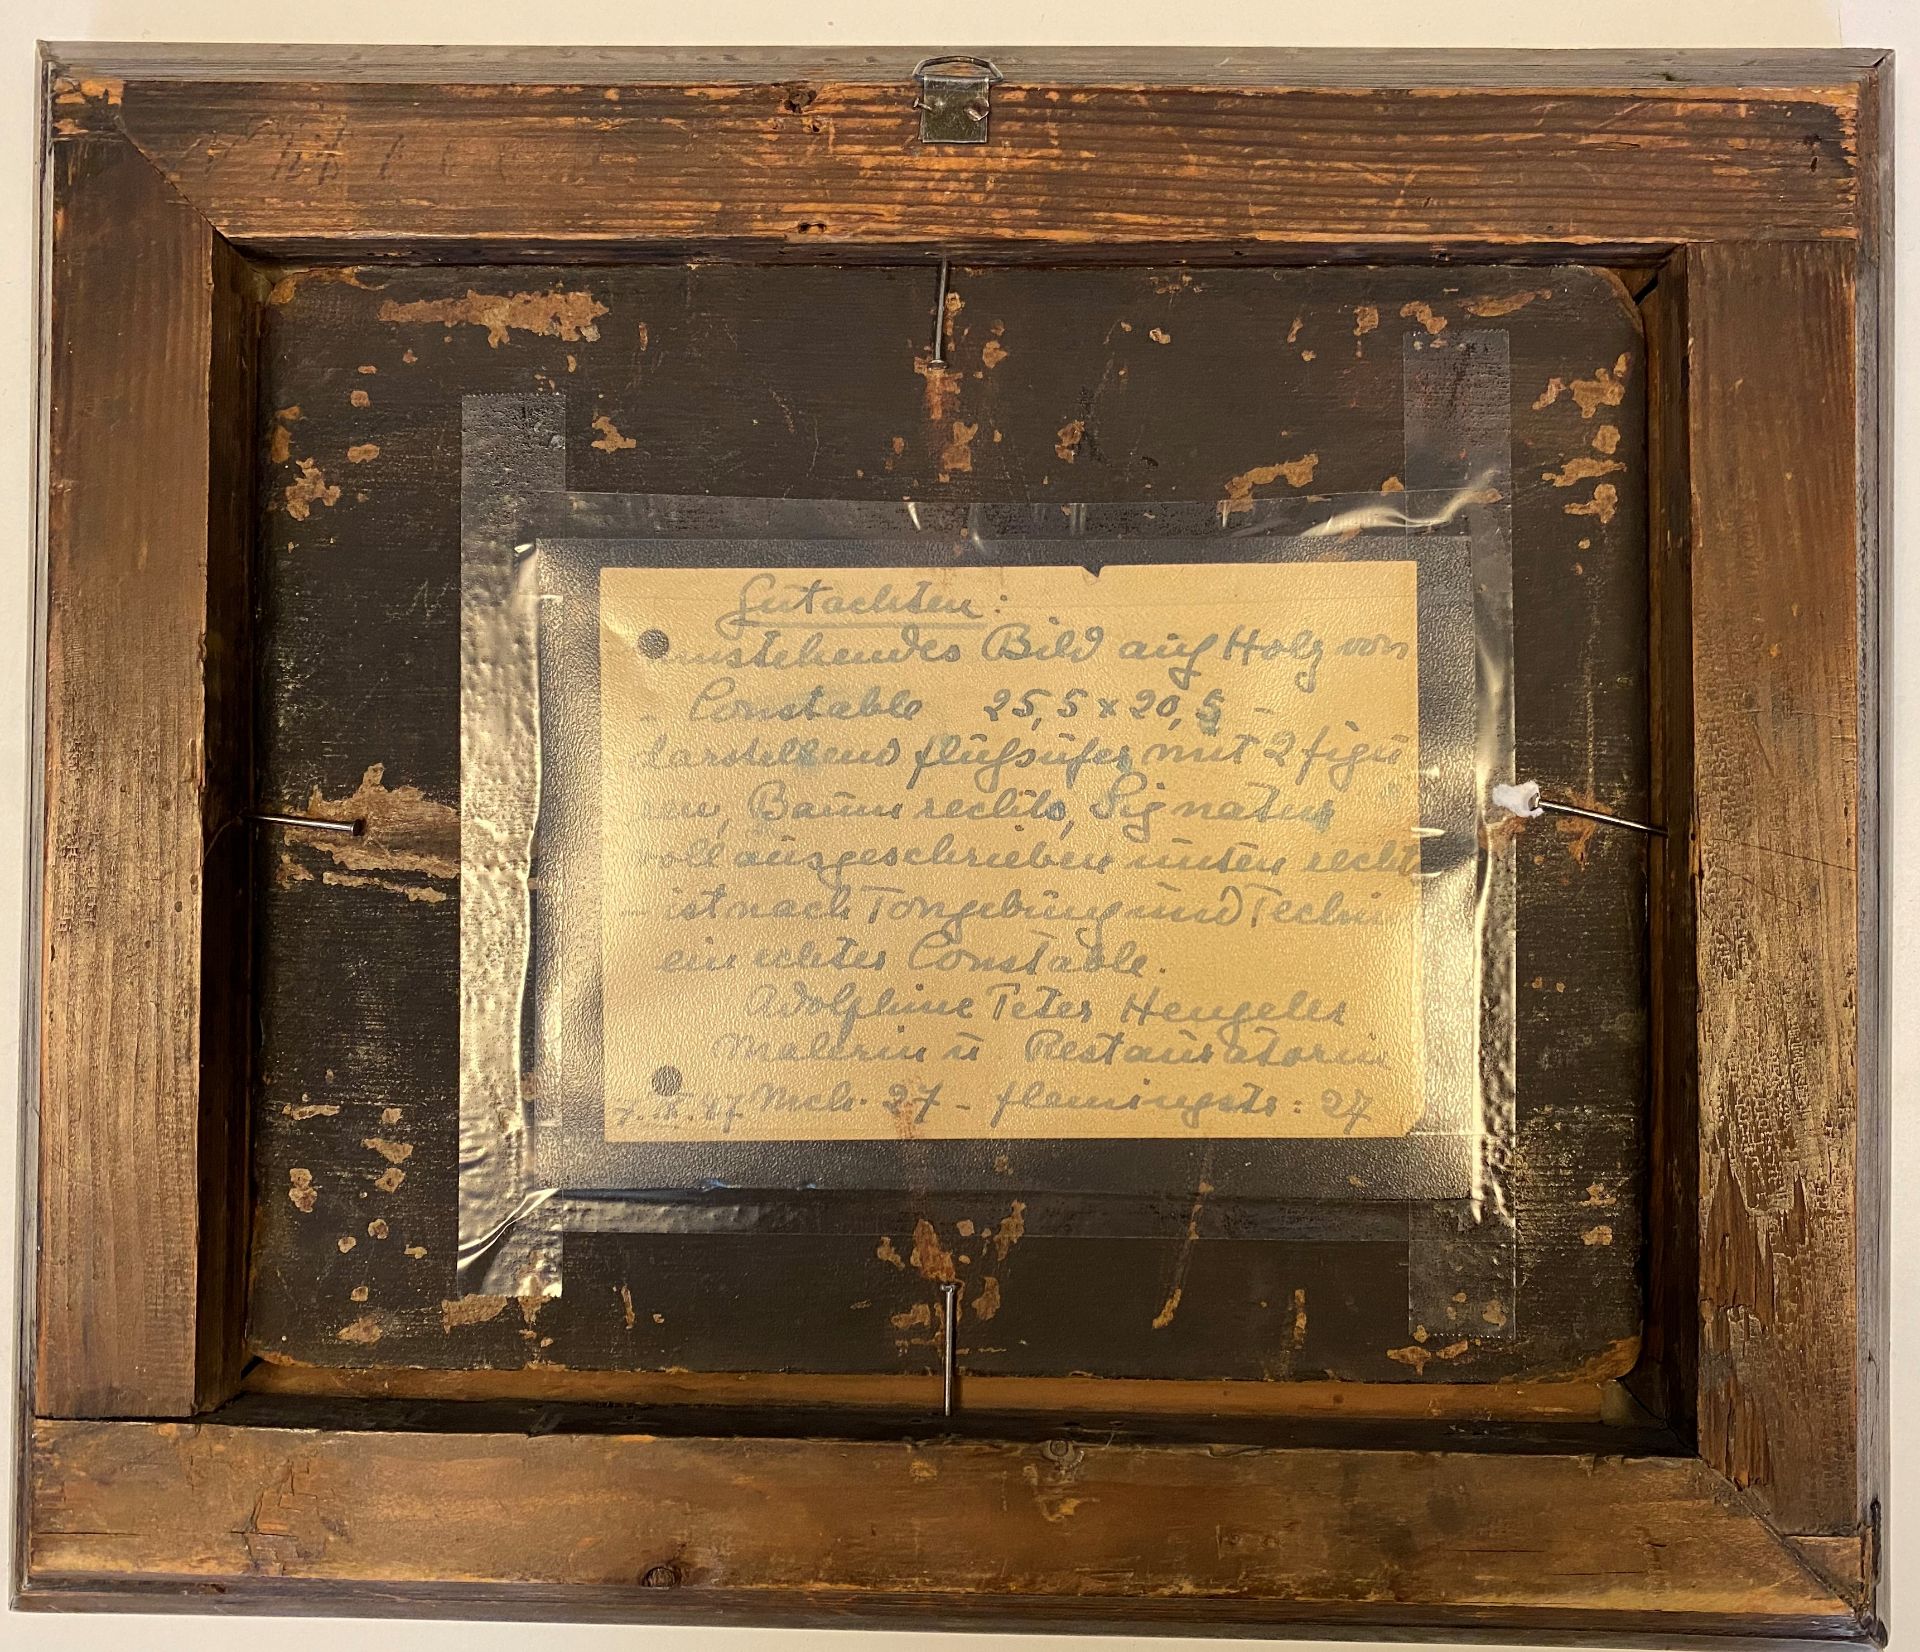 Gutachten:
umstehendes Bild auf Holz von
- Constable 25,5 x 20,5 -
darstellend Flußufer mit 2 Figu
ren, Baum rechts, Signatur
voll ausgeschrieben unten rechts
- ist nach Tongebung und Techni
ein echter Constable.
Adolphine Peter Hengeler
Malerin u Restauratorin
7.IX.47 Mch. 27 - Flemingstr: 27